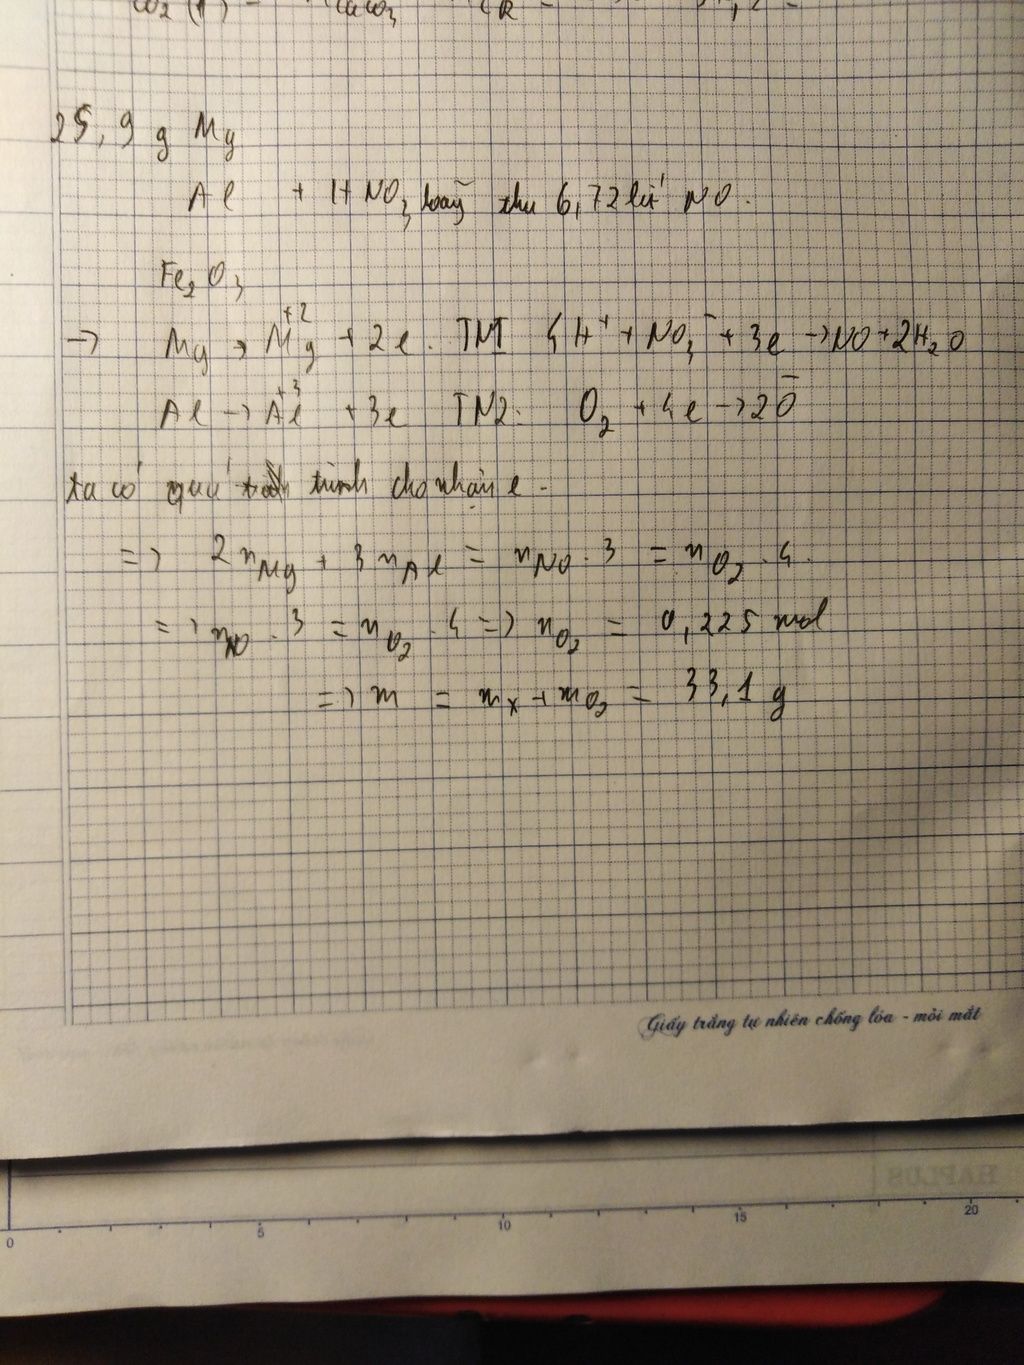 25,9 g Mg
Al + HNO3 loãg thu 6,72 lít NO.
Fe2O3
→ Mg → Mg+2 + 2e. TN1 4H+ + NO3- + 3e → NO + 2H2O
Al → Al+3 + 3e TN2: O2 + 4e → 2O-
ta có quá trình cho nhận e.
=> 2nMg + 3nAl = nNO . 3 = nO2 . 4.
=> nNO . 3 = nO2 . 4 => nO2 = 0,225 mol
=> m = mx + mO2 = 33,1 g
Giấy trắng tự nhiên chống lóa - mỏi mắt
HAPLUS
0 5 10 15 20